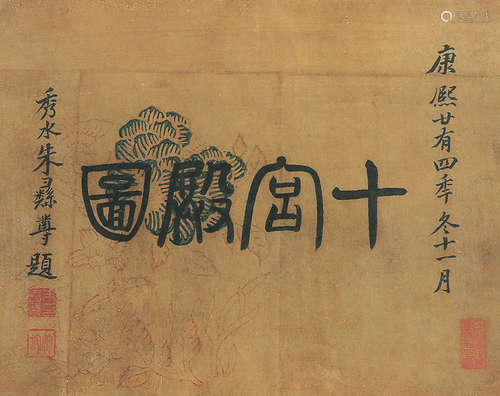 康熙廿有四年冬十一月
十宮殿圖
秀水朱彝尊題